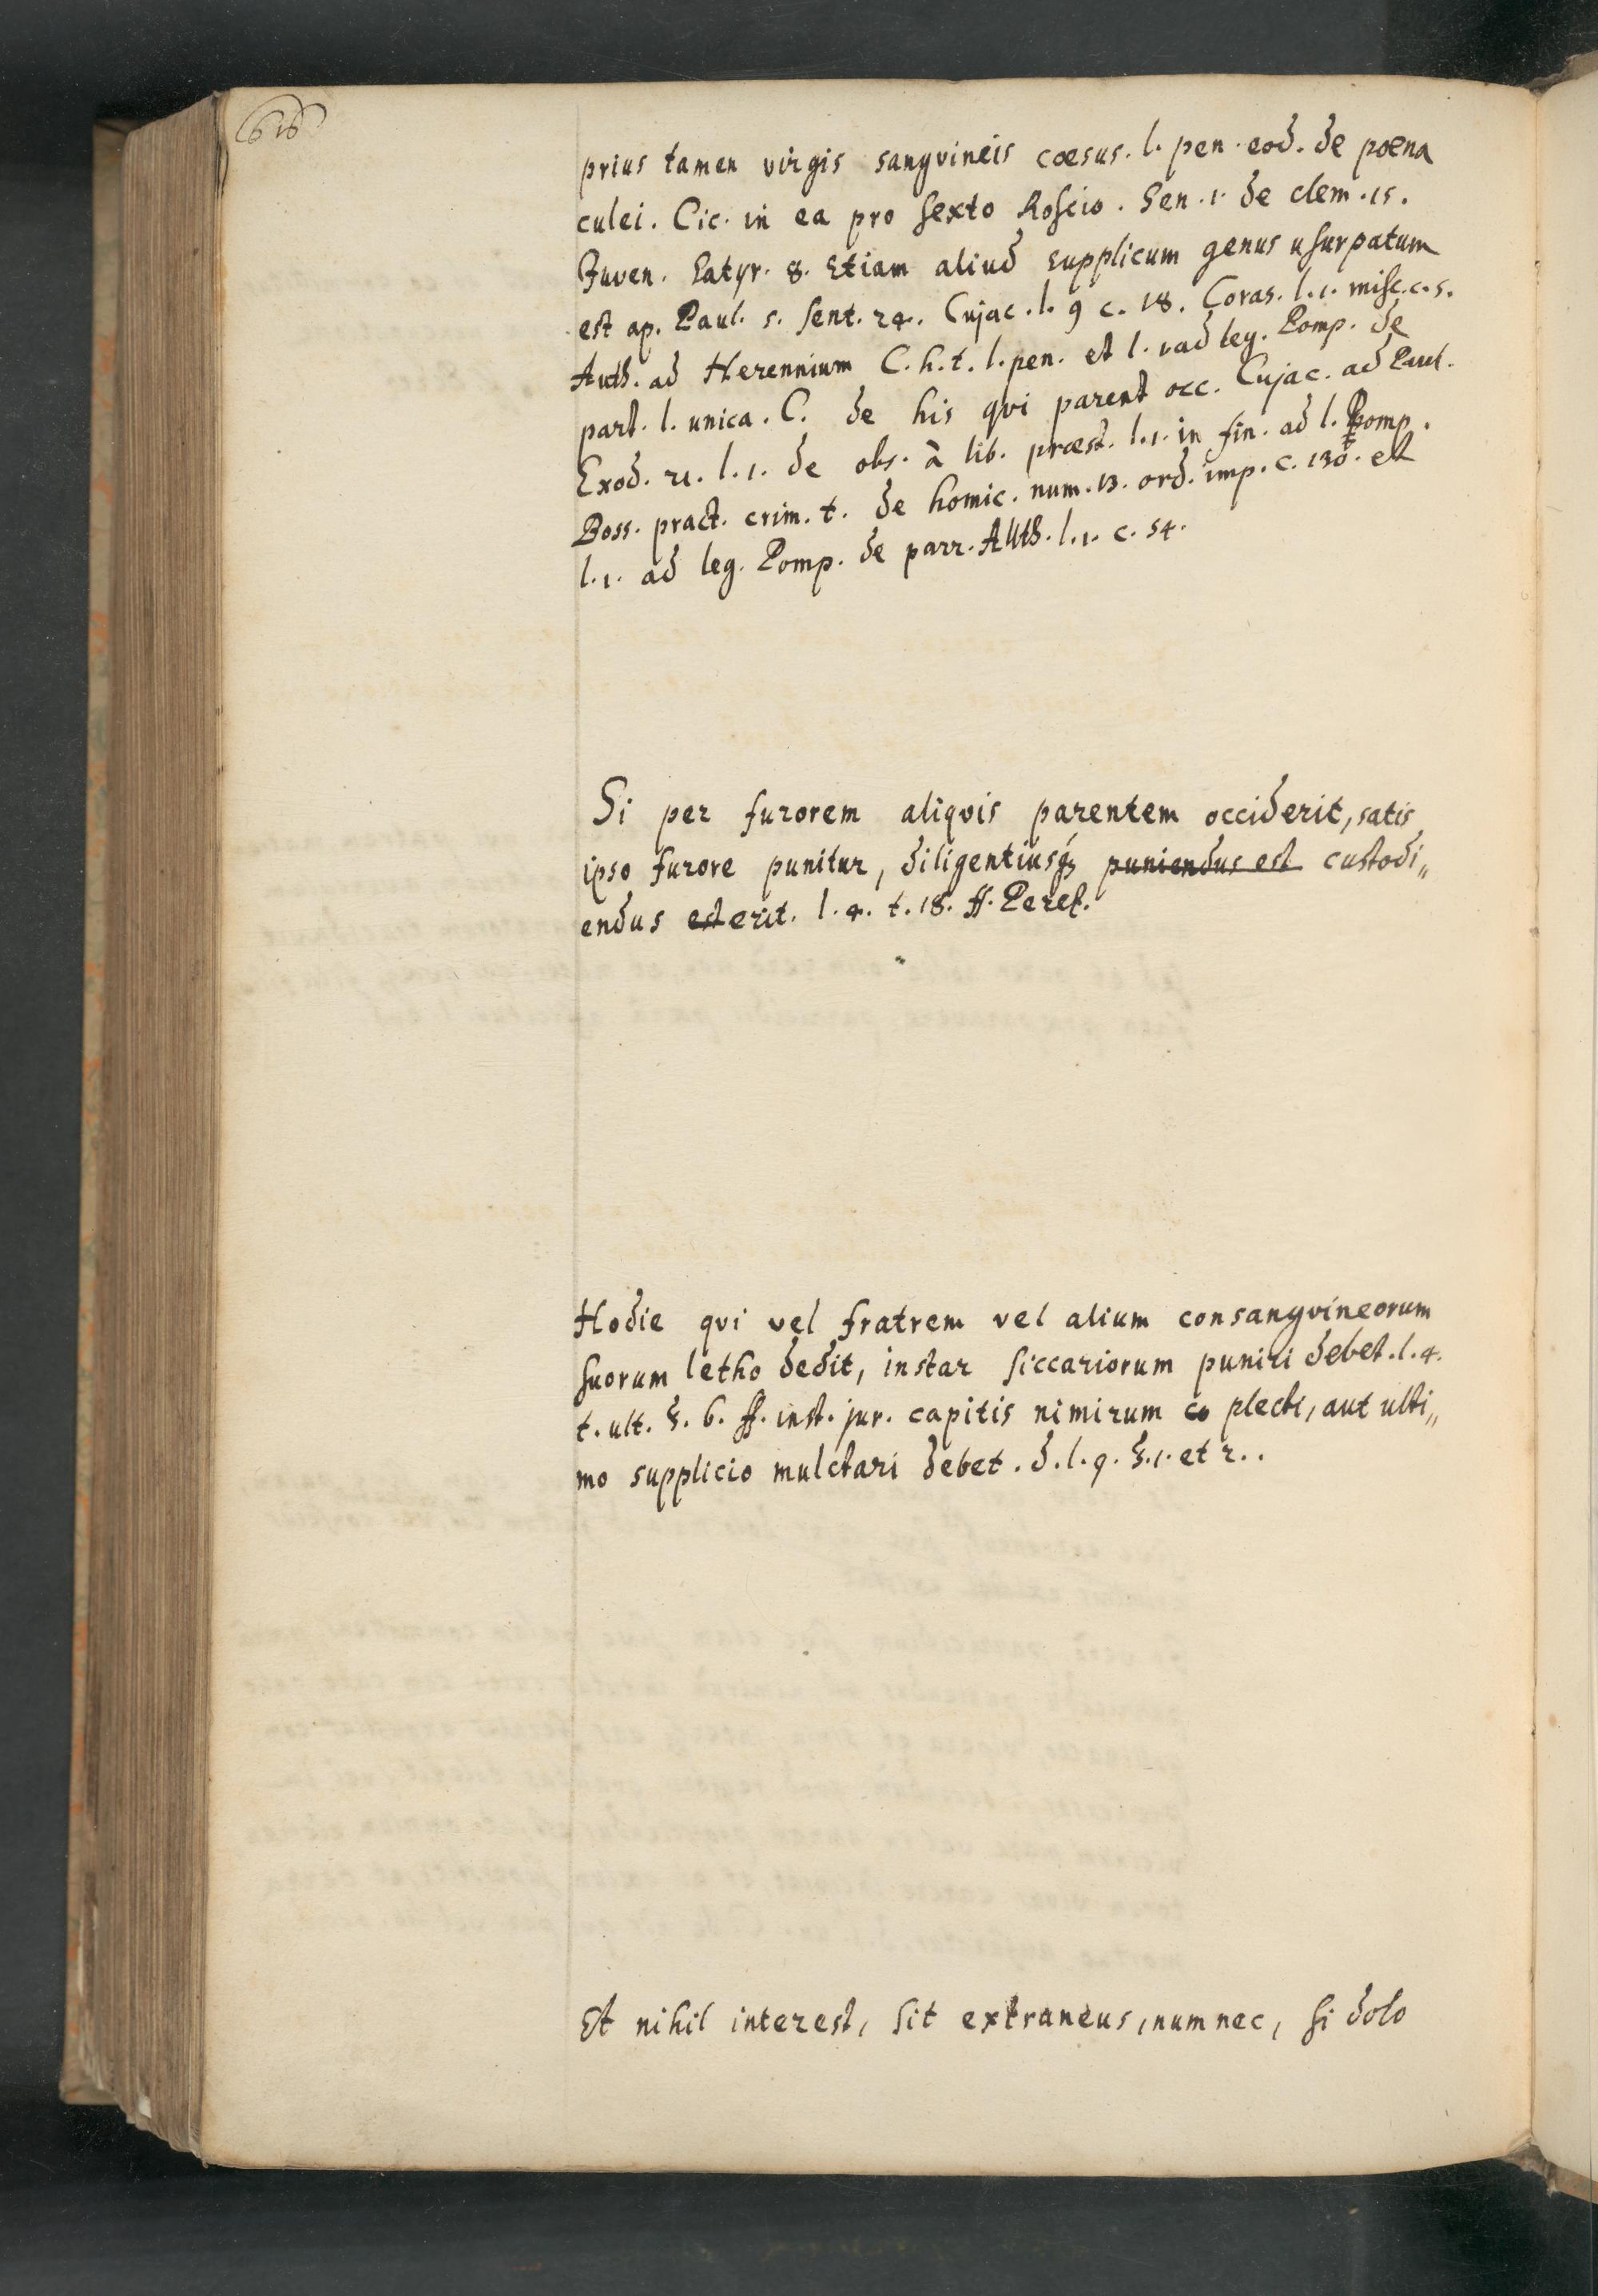 616
prius tamen virgis sangvineis cœsus. l. pen. eod. de pœna
culei. Cic. in ea pro Sexto Roscio. Sen. 1. de clem. 15.
Juven. Satyr. 8. Etiam aliud supplicum genus usurpatum
est ap. Paul. 5. sent. 24. Cujac. l. 9 c. 18. Coras. l. 1. misc. c. 5.
Auth. ad Herennium C. h. t. l. pen. et l. 1 ad leg. Pomp. de
part. l. unica. C. de his qvi parent occ. Cujac. ad Paul.
Exod. 21. l. 1. de obs. à lib. præst. l. 1. in fin. ad l. Pomp.
Boss. pract. crim. t. de homic. num. 13. ord. imp. c. 130. et
l. 1. ad leg. Pomp. de parr. Auth. l. 1. c. 54.
Si per furorem aliqvis parentem occiderit, satis
ipso furore punitur, diligentiusq; puniendus est custodi„
endus est erit. l. 4. t. 18. ff. Perez.
Hodie qvi vel fratrem vel alium consangvineorum
suorum letho dedit, instar siccariorum puniri debet. l. 4.
t. ult. §. 6. ff. inst. jur. capitis nimirum co plecti, aut ulti„
mo supplicio mulctari debet. d. l. 9. §. 1. et 2..
Et nihil interest, sit extraneus, num nec, si dolo